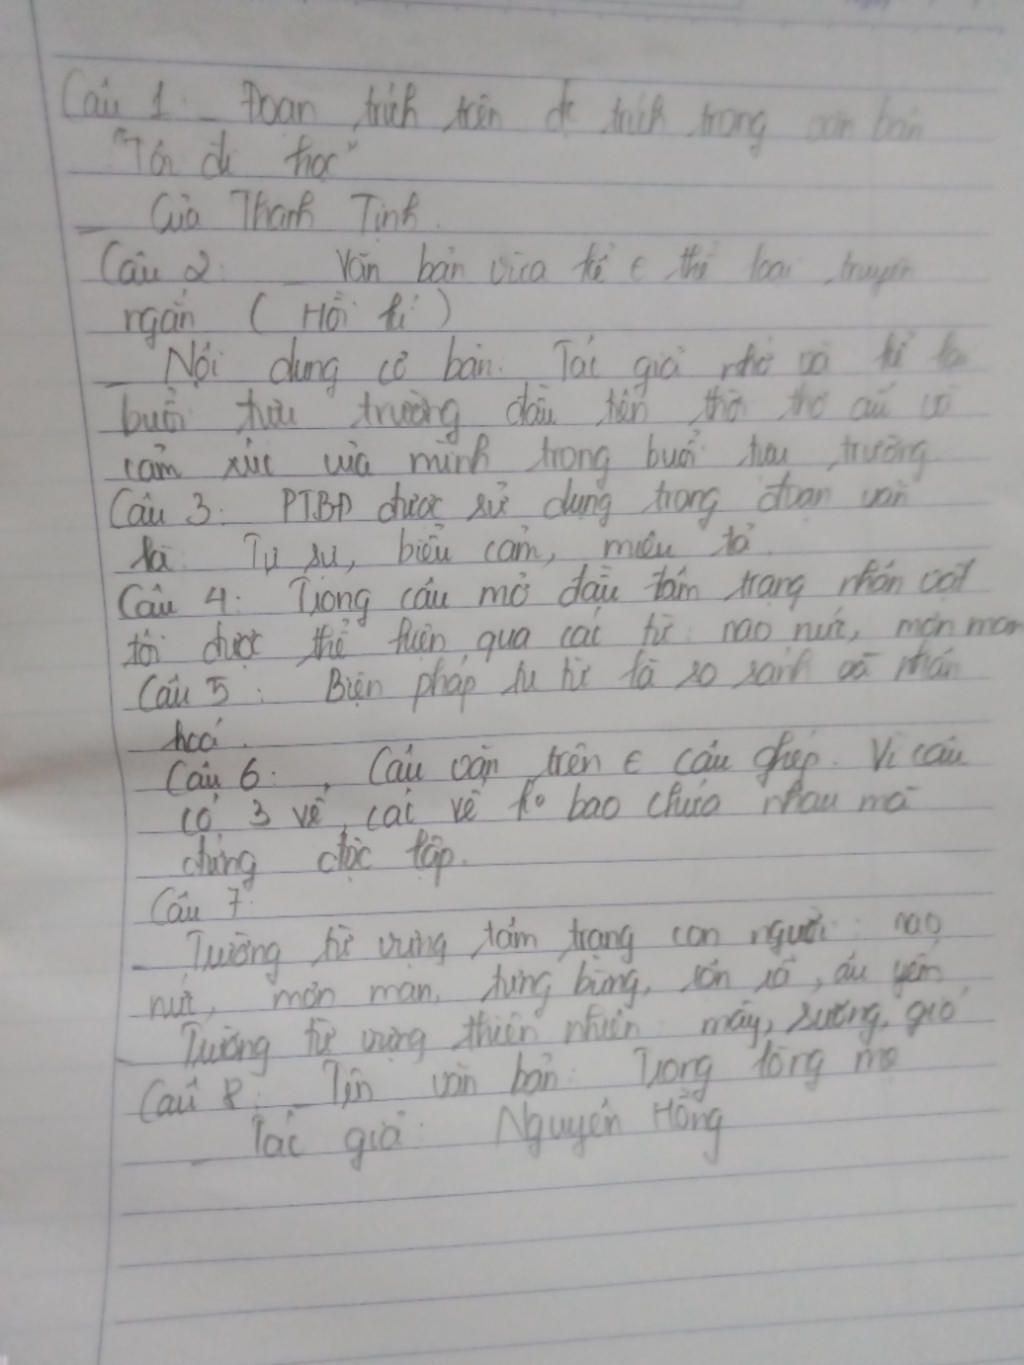 Câu 1: - Đoạn trích trên đc trích trong văn bản
"Tôi đi học"
- Của Thanh Tịnh.
Câu 2: - Văn bản vừa kể ∈ thể loại truyện
ngắn ( Hồi kí )
- Nội dung cơ bản: Tác giả nhớ và kể lại
buổi tựu trường đầu tiên thời thơ ấu và
cảm xúc của mình trong buổi tựu trường.
Câu 3: PTBĐ được sử dụng trong đoạn văn
là: Tự sự, biểu cảm, miêu tả.
Câu 4: Trong câu mở đầu tâm trạng nhân vật
tôi được thể hiện qua các từ: nao nức, mơn man
Câu 5: Biện pháp tu từ là so sánh và nhân
hoá.
Câu 6: , Câu văn trên ∈ câu ghép. Vì câu
có 3 vế, các vế ko bao chứa nhau mà
đứng độc lập.
Câu 7:
- Trường từ vựng tâm trạng con người: nao
nức, mơn man, tưng bừng, rộn rã, âu yếm
- Trường từ vựng thiên nhiên: mây, sương, gió
Câu 8: - Tên văn bản: Trong lòng mẹ
- Tác giả: Nguyên Hồng